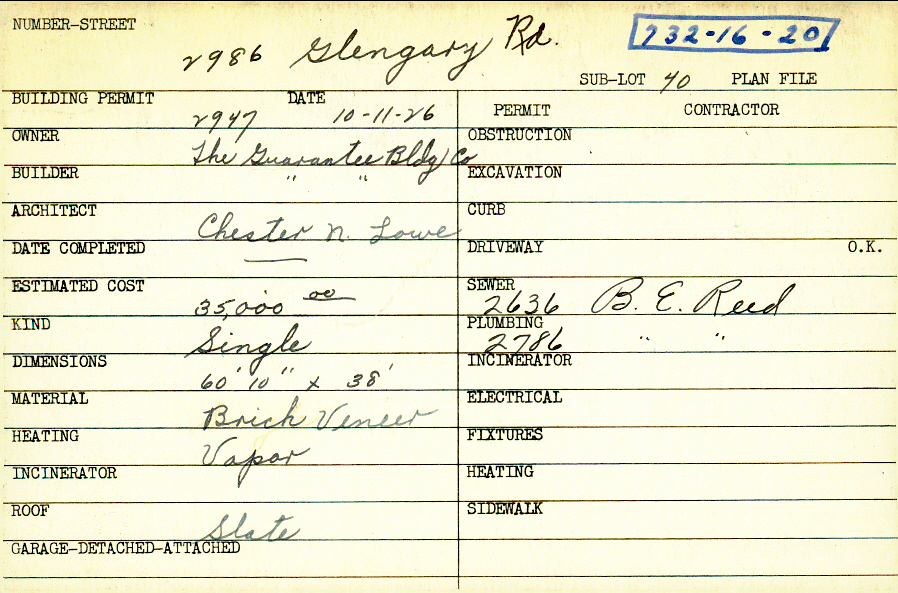 NUMBER-STREET 2986 Glengary Rd. 732-16-20
SUB-LOT 40 PLAN FILE
BUILDING PERMIT 2947 DATE 10-11-26
OWNER The Guarantee Bldg Co
BUILDER " "
ARCHITECT Chester N. Lowe
DATE COMPLETED —
ESTIMATED COST 35,000 00
KIND Single
DIMENSIONS 60' 10" x 38'
MATERIAL Brick Veneer
HEATING Vapor
INCINERATOR
ROOF Slate
GARAGE-DETACHED-ATTACHED
PERMIT CONTRACTOR
OBSTRUCTION
EXCAVATION
CURB
DRIVEWAY O.K.
SEWER 2636 B. E. Reed
PLUMBING 2786 " "
INCINERATOR
ELECTRICAL
FIXTURES
HEATING
SIDEWALK